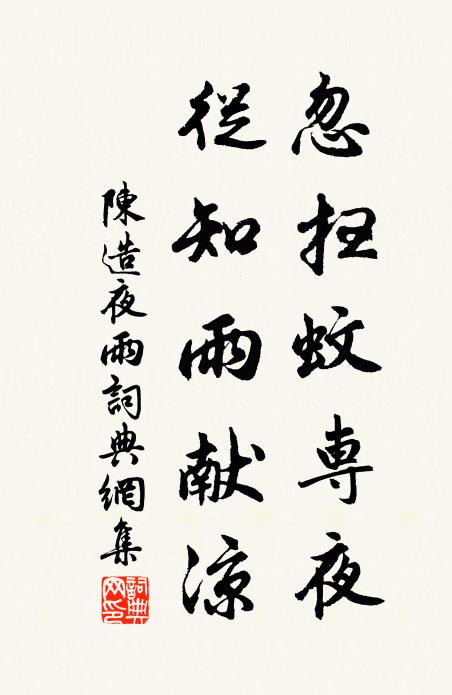 忽扫蚊専夜
從知雨献凉
陳造夜雨詞典網集
詞典网印